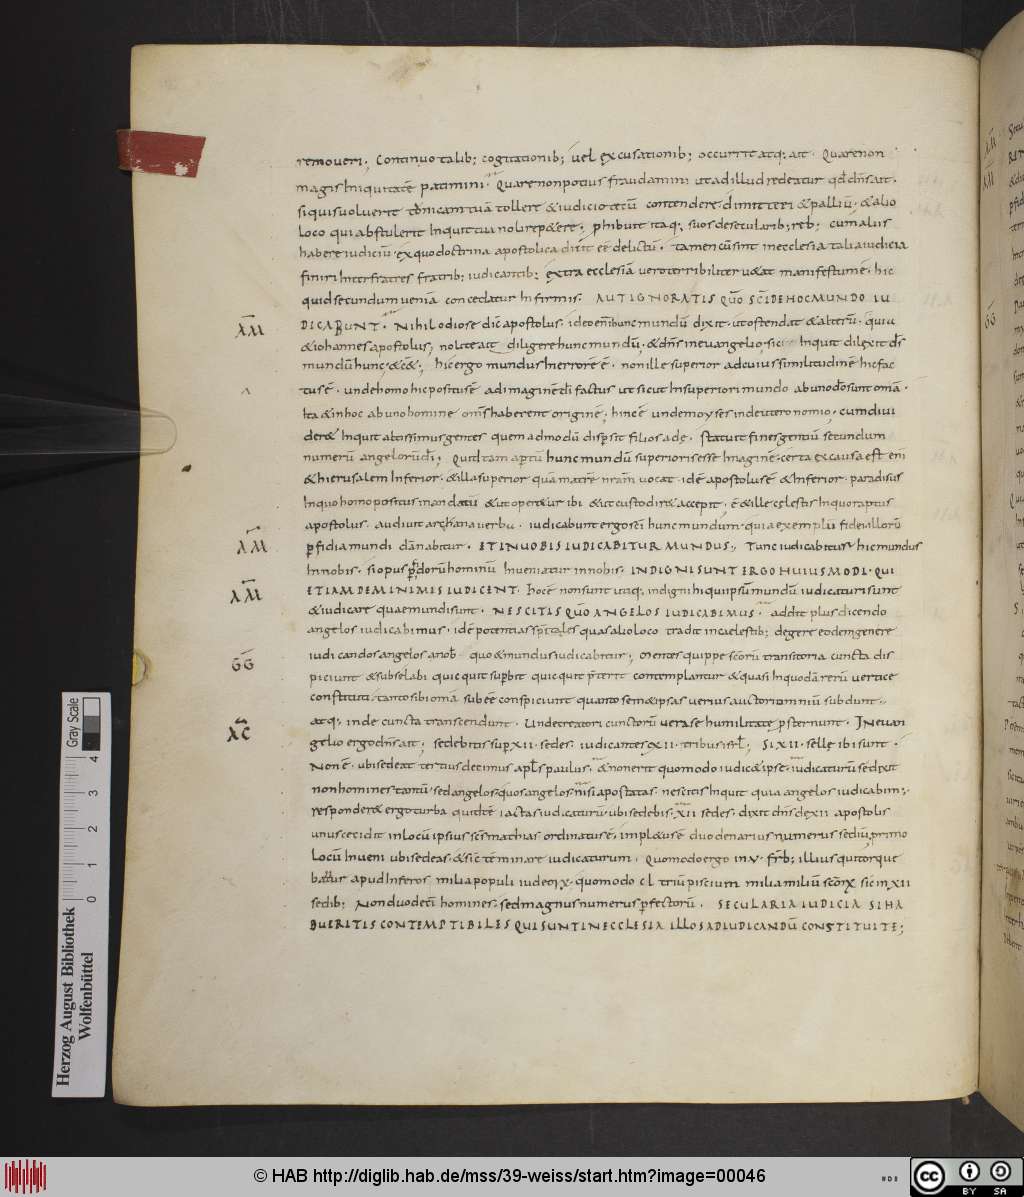 removeri. Continuo talib; cogitationib; uel excusationib; occurrit atq; ait. Quare non
magis iniquitatē patimini. Quare non potius fraudamini ut ad illud redeatur qđ dn̄s ait.
si quis uoluerit tunicam tuā tollere & iudicio tecū contendere. dimitte ei & palliū. & alio
loco qui abstulerit inquit tua noli repetere. phibuit itaq; suos de secularib; reb; cum aliis
habere iudiciū. ex quo doctrina apostolica dicit eē delictū. tamen cū sint in ecclesia talia iudicia
finiri inter fratres fratrib; iudicantib; extra ecclesiā uero terribiliter uetat manifestum ē. hic
quid secundum ueniā concedatur infirmis. AUT IGNORATIS QUO SC̄I DE HOC MUNDO IU
DICABUNT. Nihil odiose dic̄ apostolus. ideo eni hunc mundū dixit. ut ostendat & alterū. quia
& iohannes apostolus; nolite ait diligere hunc mundū; & dn̄s in euangelio; sic inquit dilexit dš
mundū hunc; hic ergo mundus in errore ē. non ille superior ad cuius similitudinē hic fac
tus ē. unde homo hic positus ē ad imaginē dī factus ut sicut in superiori mundo ab uno dō sunt omā.
ita & in hoc ab uno homine oms̄ haberent originē; hinc ē unde moyses in deuteronomio. cum diui
deret inquit altissimus gentes quem ad modū dispsit filios adę. statuit fines gentiū secundum
numerū angelorū dī; Quid tam aptū hunc mundū superioris esse imaginē. certa ex causa est eni
& hierusalem inferior. & illa superior quā matrē nram̄ uocat. idē apostolus ē & inferior paradisus
in quo homo positus mandatū & ut operetur ibi & ut custodiret accepit; ē & ille cęlestis in quo raptus
apostolus. audiuit archana uerba. iudicabunt ergo sc̄i hunc mundum. quia exemplū fidei illorū
pfidia mundi dānabitur. ET IN UOBIS IUDICABITUR MUNDUS; Tunc iudicabitur hic mundus
in nobis. si opus pdorū hominū inueniatur in nobis. INDIGNI SUNT ERGO HUIUSMODI. QUI
ETIAM DE MINIMIS IUDICENT. hoc ē non sunt itaq; indigni hi qui ipsū mundū iudicaturi sunt
& iudicare quae mundi sunt. NESCITIS QUO ANGELOS IUDICABIMUS. addit plus dicendo
angelos iudicabimus. idē potentias sp̄itales quas alio loco tradit in cęlestib; degere eodem genere
iudicandos angelos a nob quo & mundus iudicabitur; Mentes quippe scorū transitoria cuncta dis
piciunt & sub se labi quicquit supbit quicquit p̄terit contemplantur & quasi in quodā rerū uertice
constituta; tanto sibi omā subeē conspiciunt quanto semet ipsas uerius auctori omniū subdunt.
atq; inde cuncta transcendunt. Unde creatori cunctorū uera se humilitate psternunt. In euan
gelio ergo dn̄s ait; sedebitis sup XII. sedes. iudicantes XII. tribus isrl̄; Si XII. selle ibi sunt.
Non ē. ubi sedeat tertius decimus apls̄ paulus. & non erit quomodo iudicet ipse. iudicaturū se dixit
non homines tantū. sed angelos. quos angelos nisi apostatas. nescitis inquit quia angelos iudicabim;
responderet ergo turba quid tē iactas iudicaturū. ubi sedebis. XII sedes. dixit dn̄s de XII apostolis
unus cecidit in locū ipsius sc̄s mathias ordinatus ē. impletus ē duodenarius numerus sediū. primo
locū inueni ubi sedeas. & sic tē minare iudicaturum. Quomodo ergo in V. frb; illius quinque
apud inferos milia populi iudeo quomodo triū pisciū milia sic in XII
sedib; Non duodecī homines. sed magnus numerus pfectorū. SECULARIA IUDICIA SI HA
BUERITIS CONTEMPTIBILES QUI SUNT IN ECCLESIA ILLOS AD IUDICANDŪ CONSTITUITE;
AM
AM
AM
GG
XC
Herzog August Bibliothek
Wolfenbüttel
Gray Scale
0 1 2 3 4
© HAB http://diglib.hab.de/mss/39-weiss/start.htm?image=00046
cc BY SA